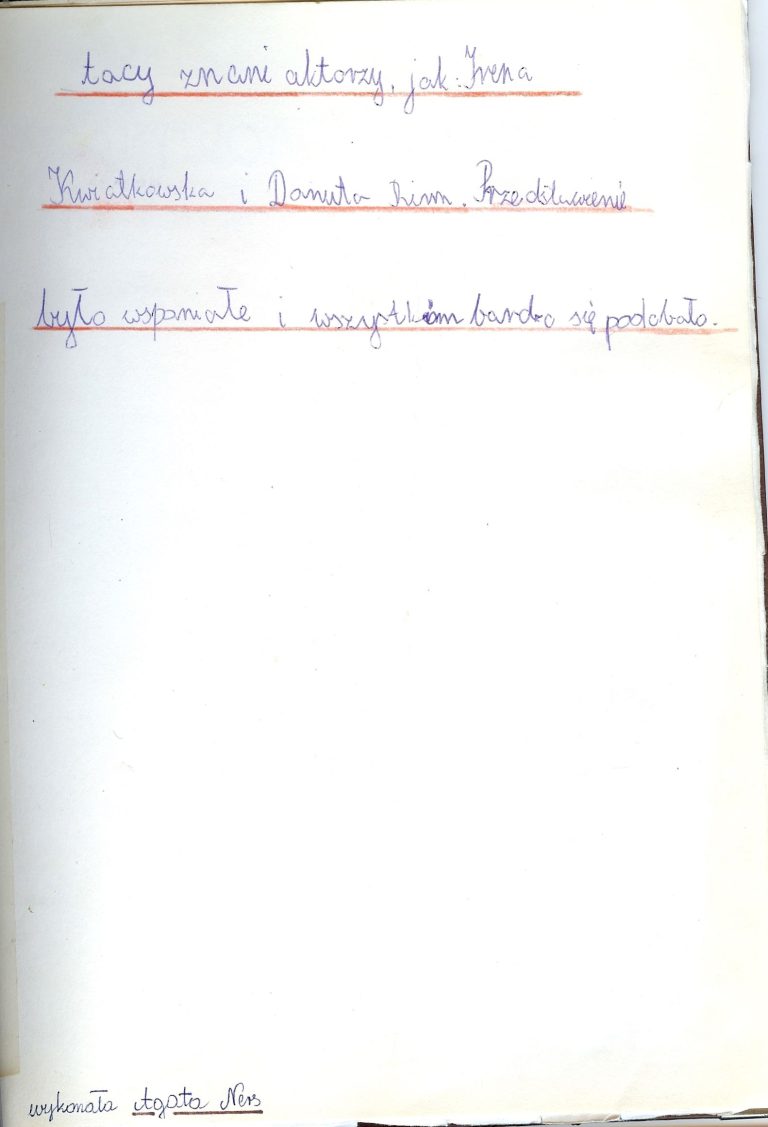 tacy znani aktorzy, jak: Irena
Kwiatkowska i Danuta Rinn. Przedstawienie
było wspaniałe i wszystkim bardzo się podobało.
wykonała Agata Ners